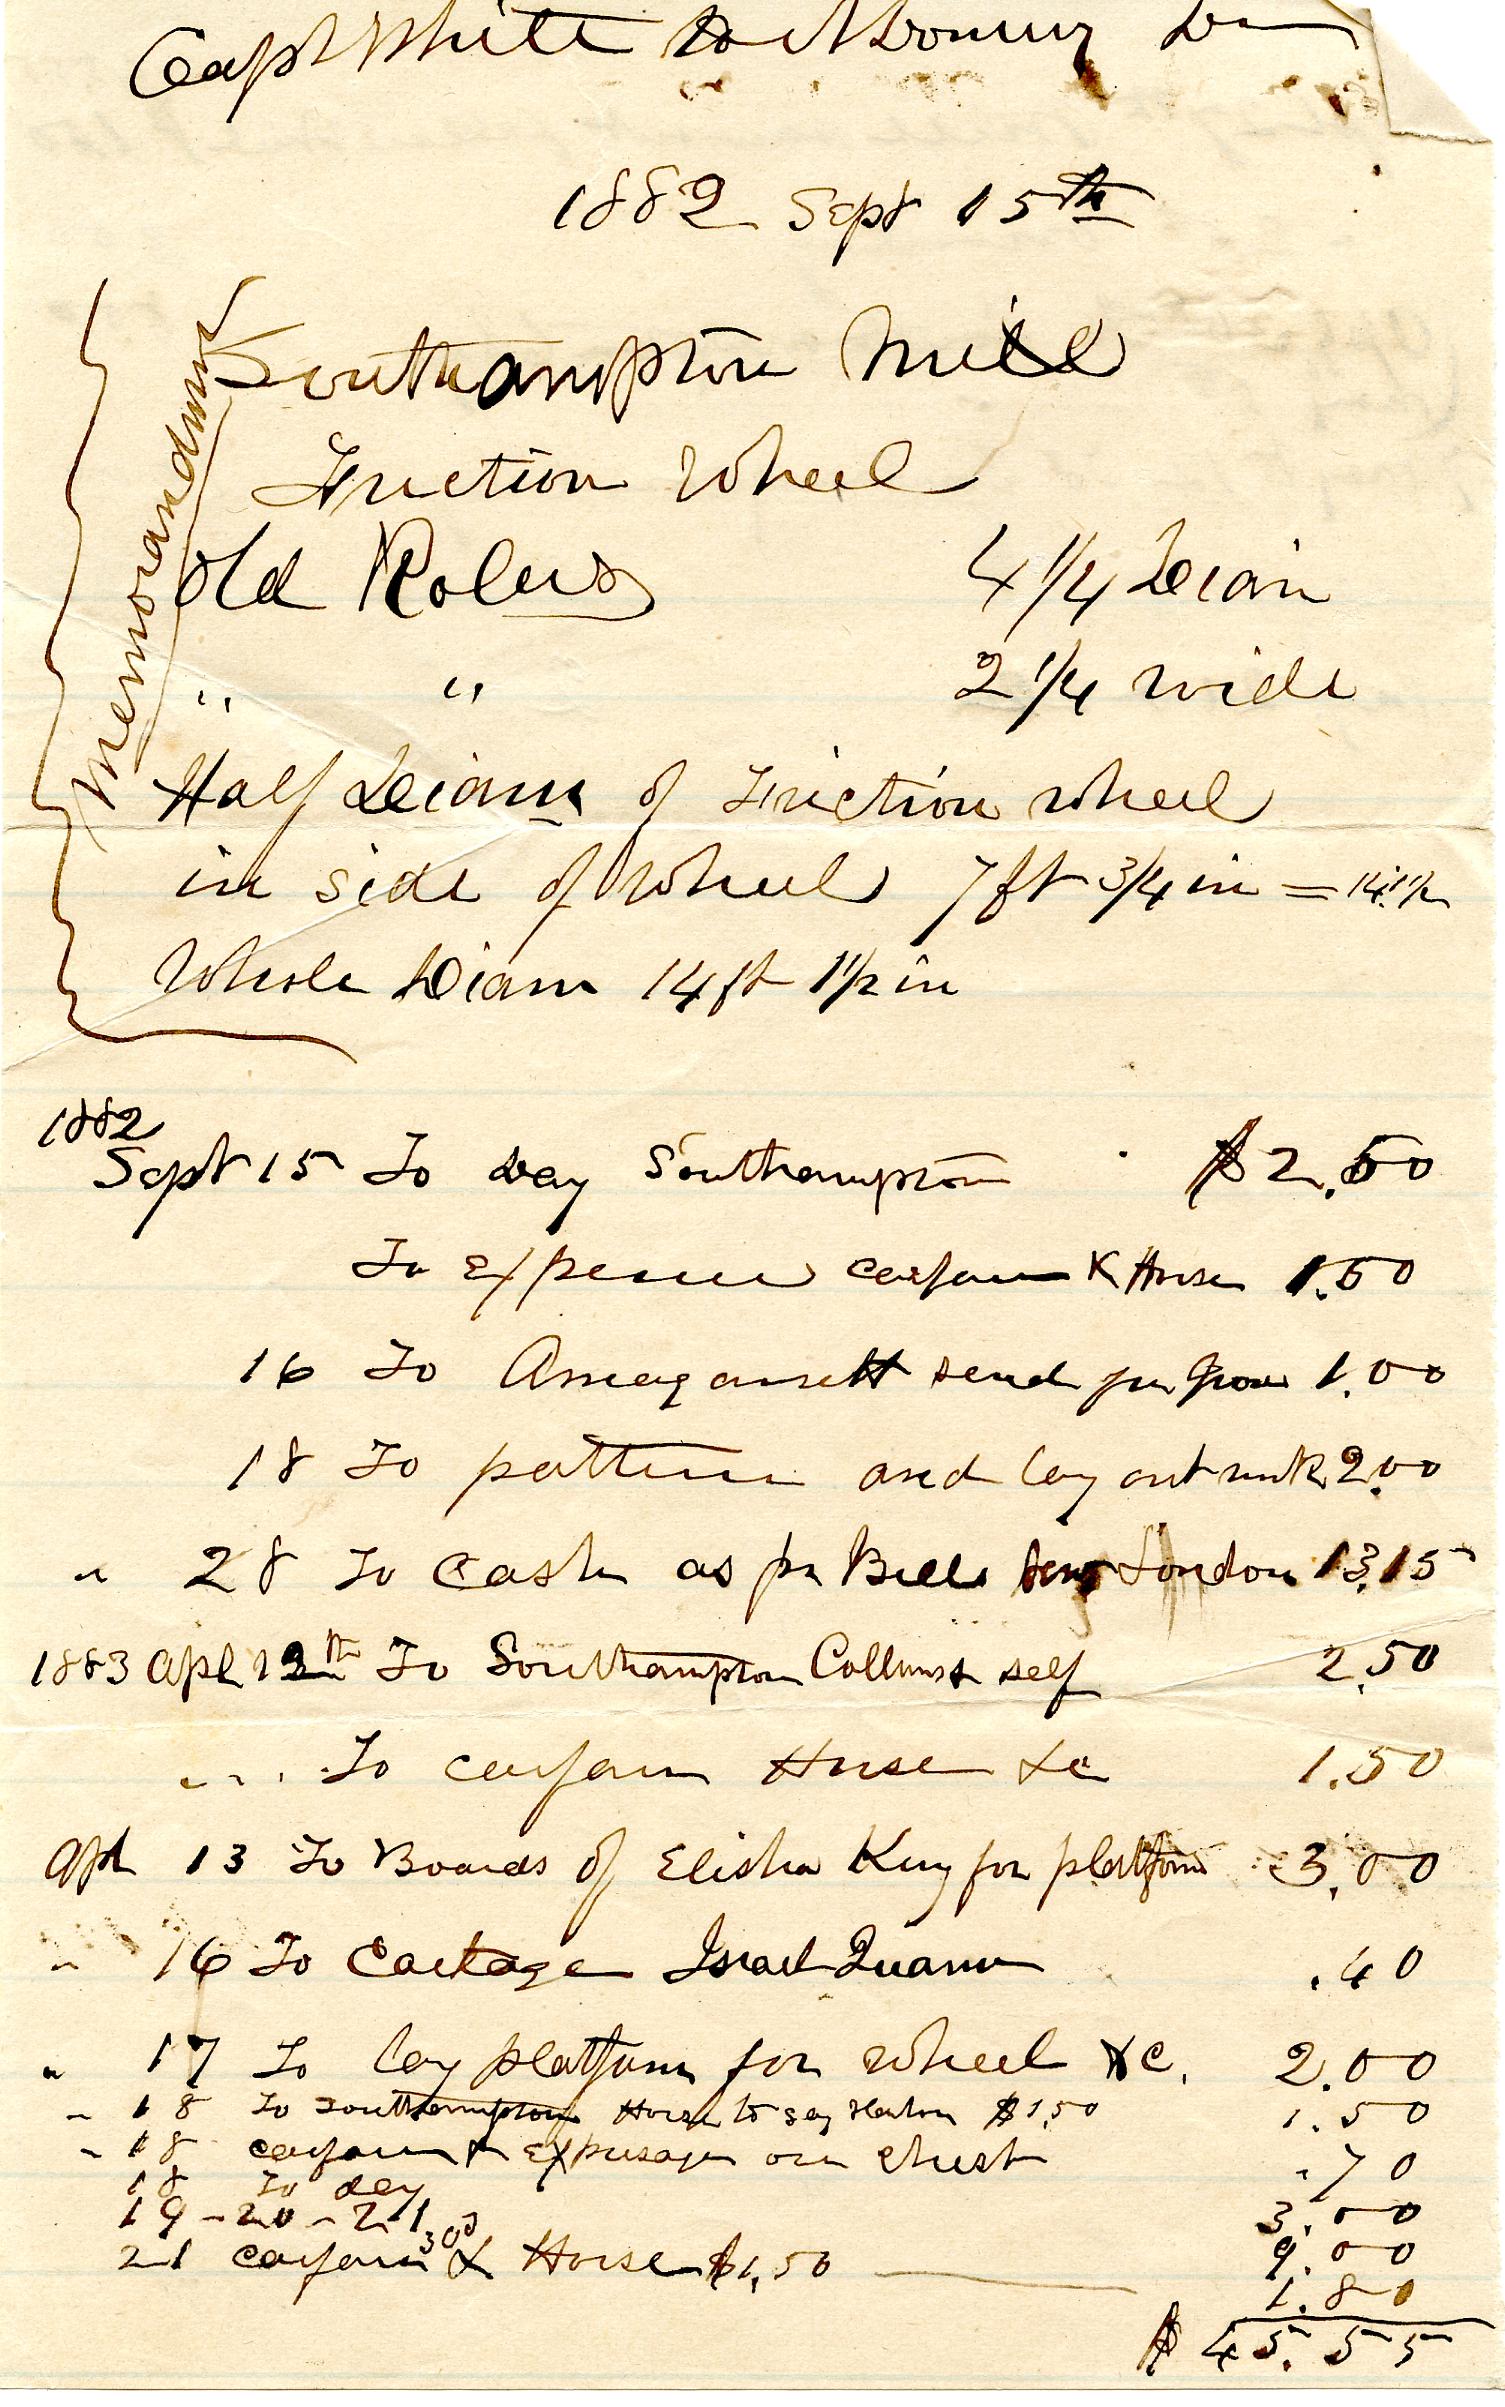 Capt White to
1882 Sept 15th
Memorandum
Southampton Mill
Friction Wheel
Old Rolers 4 1/4 Deiam
" " 2 1/4 wide
Half Deiam of Friction wheel
in side of wheel 7 ft 3/4 in = 14.1 1/2
Whole Deiam 14 ft 1 1/2 in
1882
Sept 15 To Day Southampton $2.50
To Expence carfare & Horse 1.50
16 To Amagansett send for 1.00
18 To pattern and lay out work 2.00
" 28 To Cash as pr Bill New London 13.15
1883 Apl 12th To Southampton self 2.50
" " To carfare Horse &c 1.50
Apl 13 To Boards of Elisha King for platform 3.00
" 16 To Cartage Israel .40
" 17 To lay platform for wheel &c. 2.00
" 18 To Southampton Horse to $1.50 1.50
" 18 carfare & on chest .70
18 To day 3.00
19 - 20 - 21 9.00
21 carfare 30 & Horse $1,50 1.80
$ 45.55